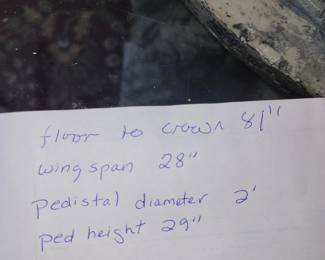 floor to crown 81"
wing span 28"
pedistal diameter 2'
ped height 29"